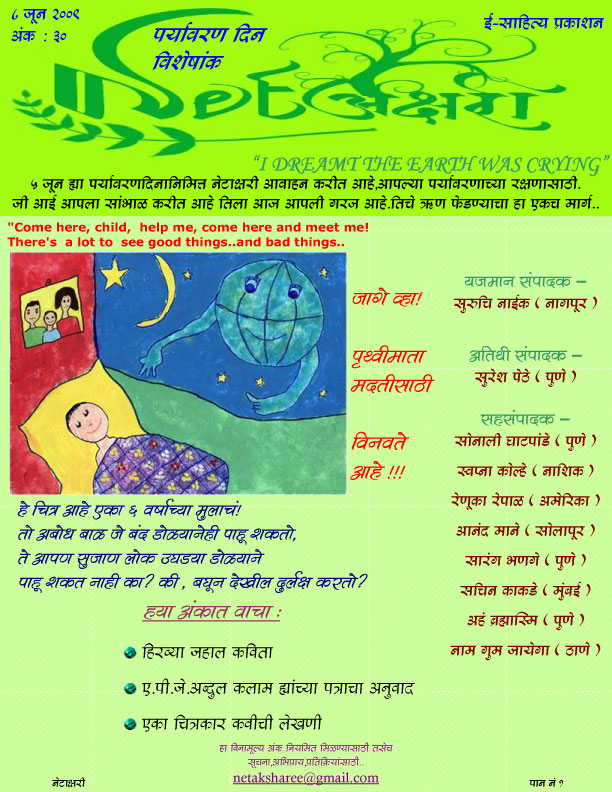 ८ जून २००९
अंक : ३०
पर्यावरण दिन
विशेषांक
ई-साहित्य प्रकाशन
Netअक्षरी
“I DREAMT THE EARTH WAS CRYING”
५ जून ह्या पर्यावरणदिनानिमित्त नेटाक्षरी आवाहन करीत आहे,आपल्या पर्यावरणाच्या रक्षणासाठी.
जी आई आपला सांभाळ करीत आहे तिला आज आपली गरज आहे.तिचे ऋण फेडण्याचा हा एकच मार्ग..
"Come here, child, help me, come here and meet me!
There's a lot to see good things..and bad things..
जागे व्हा!
पृथ्वीमाता
मदतीसाठी
विनवते
आहे !!!
यजमान संपादक –
सुरुचि नाईक ( नागपूर )
अतिथी संपादक –
सुरेश पेठे ( पुणे )
सहसंपादक –
सोनाली घाटपांडे ( पुणे )
स्वप्ना कोल्हे ( नाशिक )
रेणूका रेपाळ ( अमेरिका )
आनंद माने ( सोलापूर )
सारंग भणगे ( पुणे )
सचिन काकडे ( मुंबई )
अहं ब्रह्मास्मि ( पुणे )
नाम गुम जायेगा ( ठाणे )
हे चित्र आहे एका ६ वर्षाच्या मुलाचं!
तो अबोध बाळ जे बंद डोळयानेही पाहू शकतो,
ते आपण सुजाण लोक उघडया डोळयाने
पाहू शकत नाही का? की , बघून देखील दुर्लक्ष करतो?
हया अंकात वाचा :
हिरव्या जहाल कविता
ए.पी.जे.अब्दुल कलाम ह्यांच्या पत्राचा अनुवाद
एका चित्रकार कवीची लेखणी
हा विनामूल्य अंक नियमित मिळण्यासाठी तसेच
सूचना,अभिप्राय,प्रतिक्रियांसाठी..
netaksharee@gmail.com
नेटाक्षरी
पान नं १